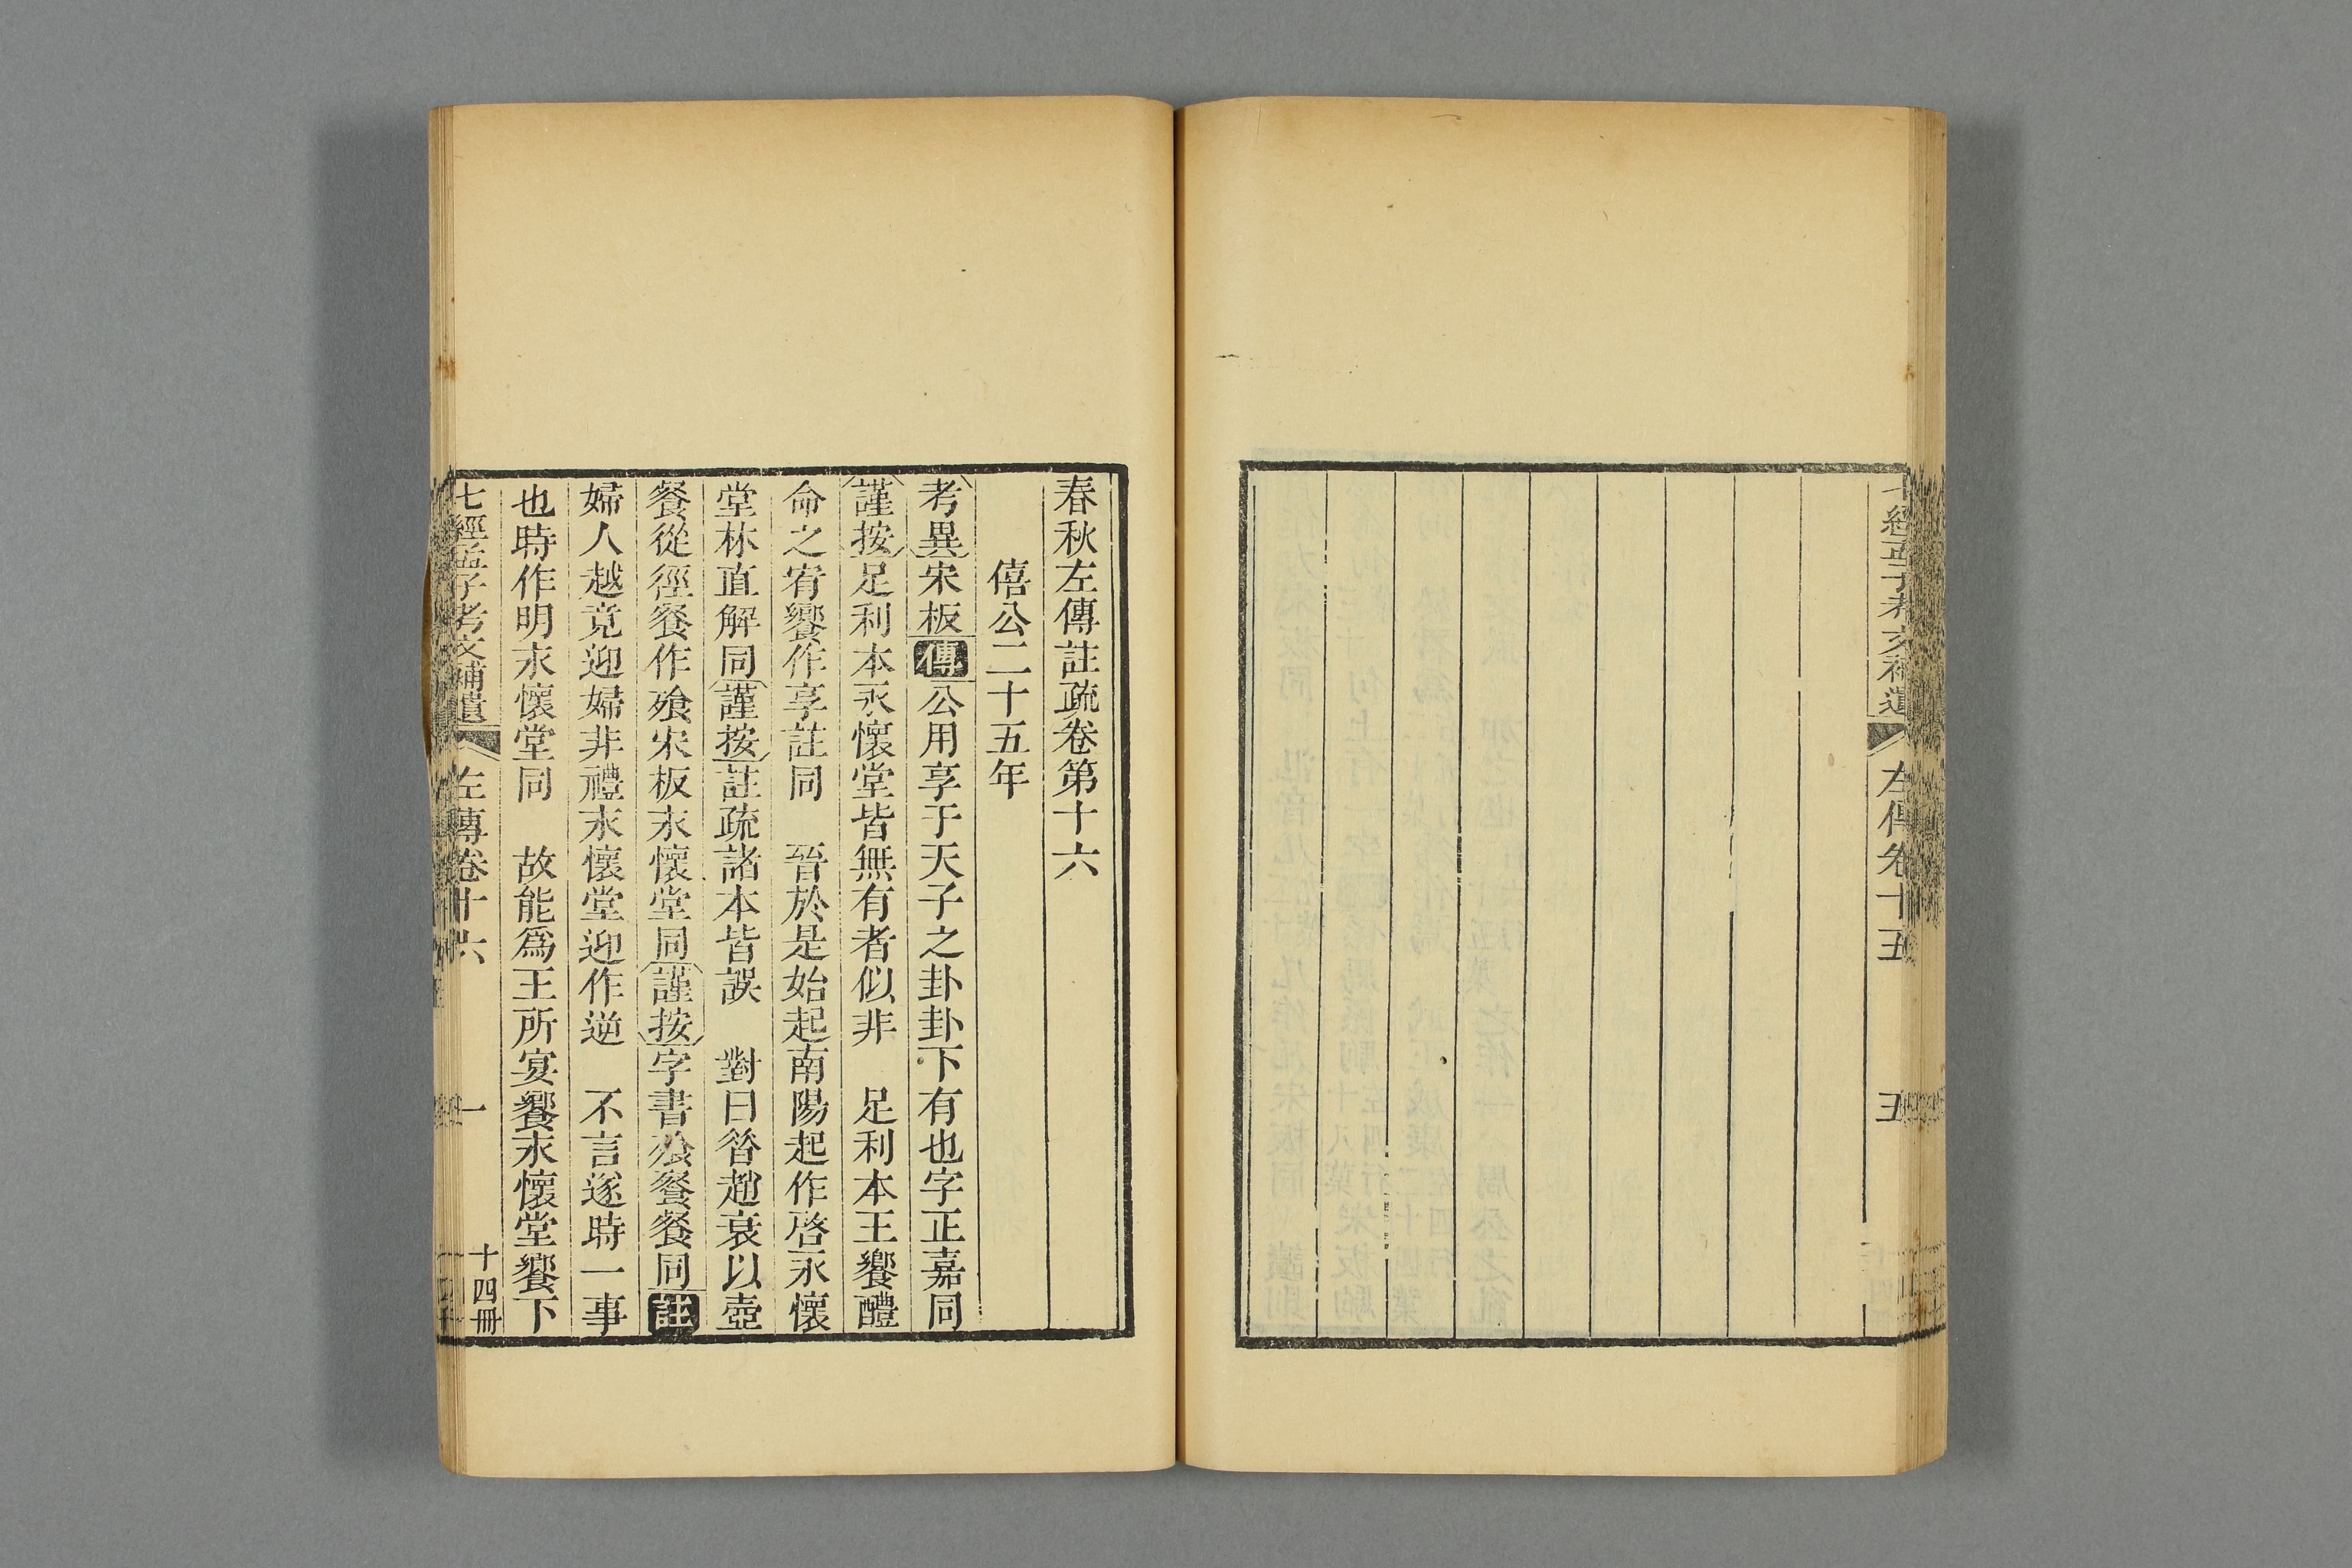 七經孟子考文補遺 左傳卷十五 五
春秋左傳註疏卷第十六
僖公二十五年
考異宋板傳公用享于天子之卦卦下有也字正嘉同
謹按足利本永懷堂皆無有者似非 足利本王饗醴
命之宥饗作享註同 晉於是始起南陽起作啓永懷
堂林直解同謹按註疏諸本皆誤 對曰昝趙衰以壺
餐從徑餐作飱宋板永懷堂同謹按字書飱餐餐同註
婦人越竟迎婦非禮永懷堂迎作逆 不言遂時一事
也時作明永懷堂同 故能爲王所宴饗永懷堂饗下
七經孟子考文補遺 左傳卷十六 一 十四冊